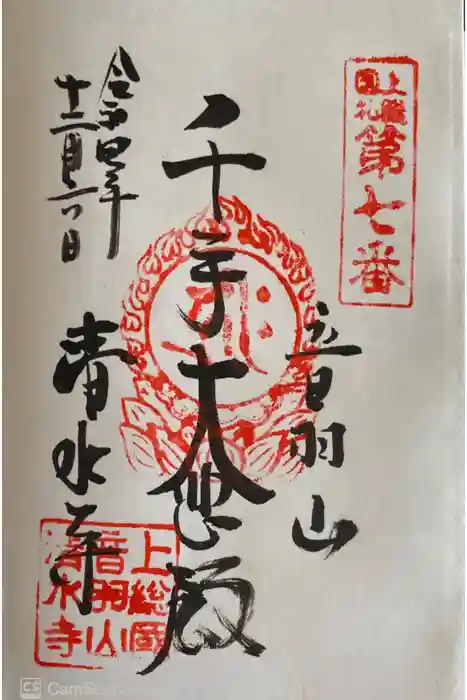 上総国札第七番
音羽山
千手大悲殿
清水寺
令和四年
十二月六日
上総国
音羽山
清水寺
CS CamScanner